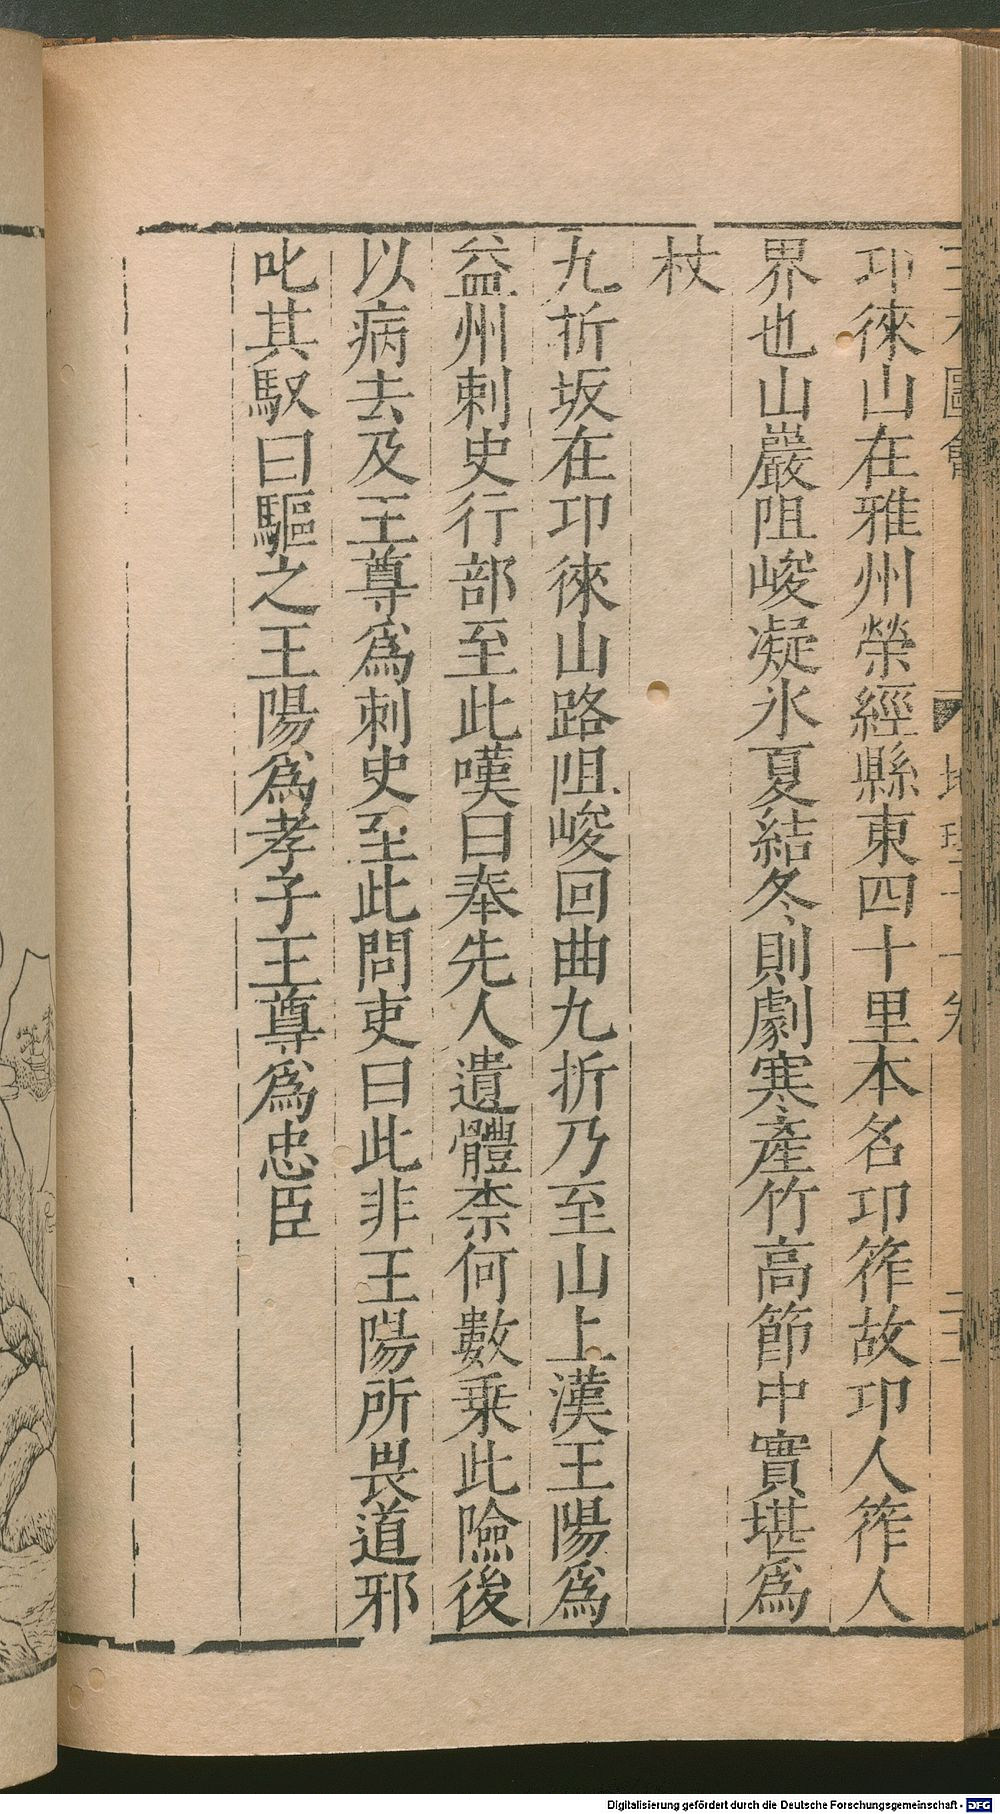 三才圖會 地理十一卷
卭徠山在雅州榮經縣東四十里本名卭筰故卭人筰人
界也山巖阻峻凝氷夏結冬則劇寒產竹高節中實堪為
杖
九折坂在卭徠山路阻峻回曲九折乃至山上漢王陽為
益州刺史行部至此嘆曰奉先人遺體柰何數乗此險後
以病去及王尊為刺史至此問吏曰此非王陽所畏道邪
叱其馭曰驅之王陽為孝子王尊為忠臣
Digitalisierung gefördert durch die Deutsche Forschungsgemeinschaft - DFG